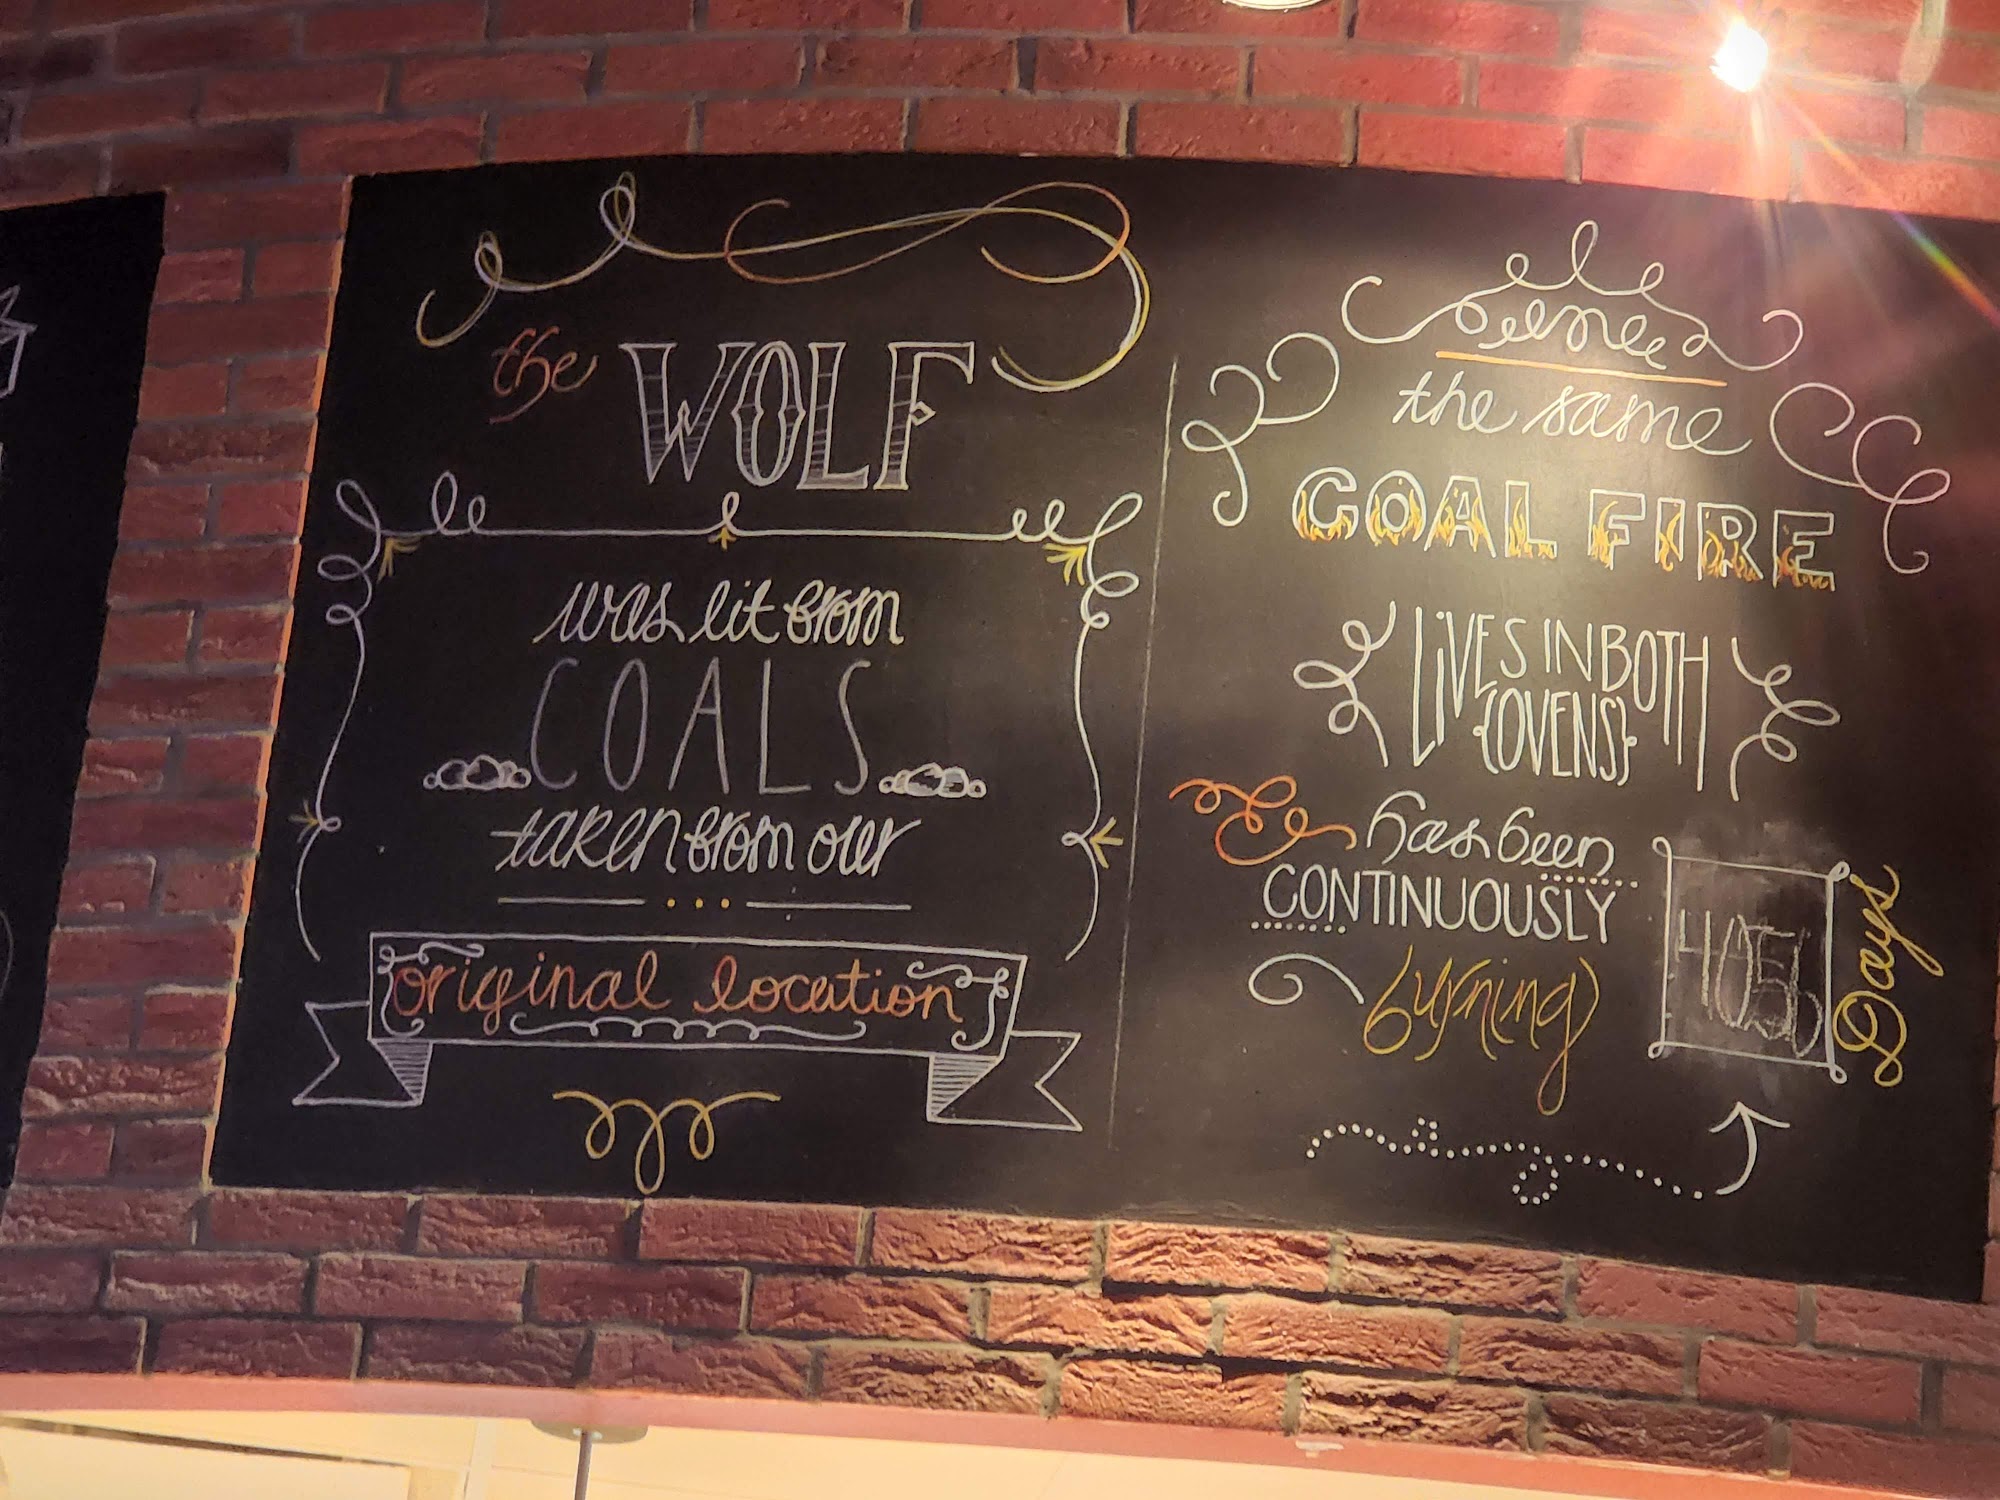 the WOLF
was lit from
COALS
taken from our
original location
the same
COAL FIRE
LiVES IN BOTH
{OVENS}
has been
CONTINUOUSLY
burning
Days